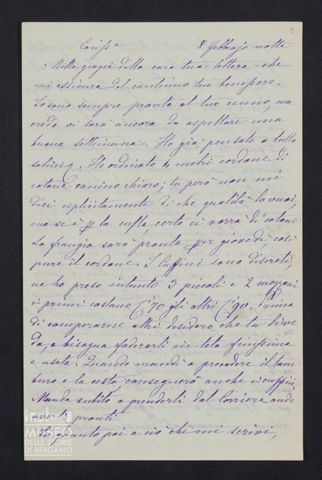 Cariss.a 8 febbrajo notte
Mille grazie della cara tua lettera che
mi assicura del continuo tuo benessere.
Io sono sempre pronta al tuo cenno ma
credo vi sarà ancora da aspettare una
buona settimana. Ho già pensato a tutto
Ho ordinato metri cordone di
cotone canino chiaro; tu però non mi
dici esplicitamente di che qualità lo vuoi,
ma se è per la cuffia certo ci vorrà di cotone
La frangia sarà pronta per giovedì così
pure il cordone. I cuffini sono discreti,
ne ho preso intanto 3 piccoli e 2 mezzani
i primi costano 70 gli altri 90. Prima
di comperarne altri desidero che tu li ve
da, e bisogna foderarli in tela finissima
e usata. Quando mandi a prendere il tam
buro e la cesta consegnerò anche i cuffini
Manda subito a prenderli dal Corriere onde
averli pronti
In quanto poi a ciò che mi scrivi,
MUSEO
DELLE STORIE
DI BERGAMO